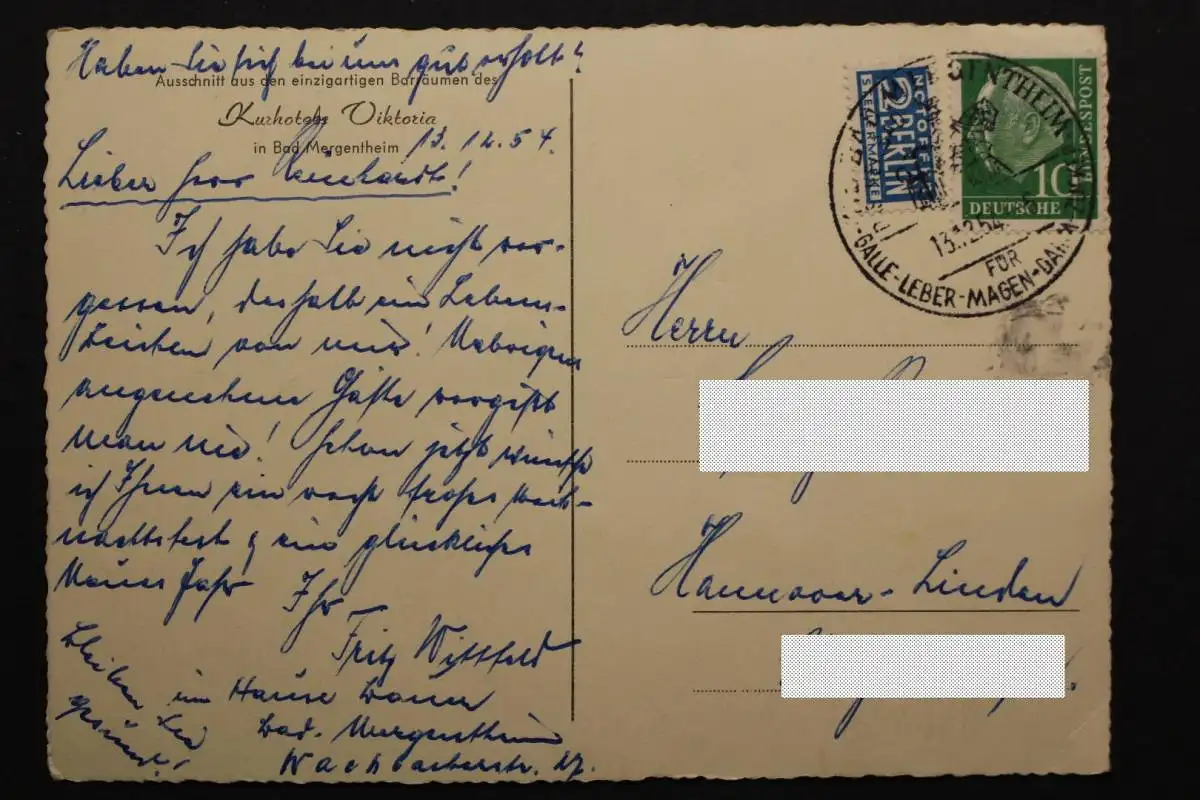 Haben Sie sich bei uns gut erholt?
Ausschnitt aus den einzigartigen Barräumen des
Kurhotels Viktoria
in Bad Mergentheim
13.12.54.
Lieber Herr Reinhardt!
Ich habe Sie nicht ver-
gessen, deshalb ein Lebens-
zeichen von mir! Uebrigens
angenehme Gäste vergißt
man nie! Schon jetzt wünsche
ich Ihnen ein recht frohes Weih-
nachtsfest & ein glückliches
Neues Jahr
Ihr
Fritz Wittfeld
im Hause
Bad. Mergentheim
Wachbacherstr. 27.
Bleiben Sie
gesund!
NOTOPFER
2 BERLIN
STEUERMARKE
DEUTSCHE BUNDESPOST
10
13.12.54
FÜR
GALLE-LEBER-MAGEN-DARM
Herrn
Hannover-Linden